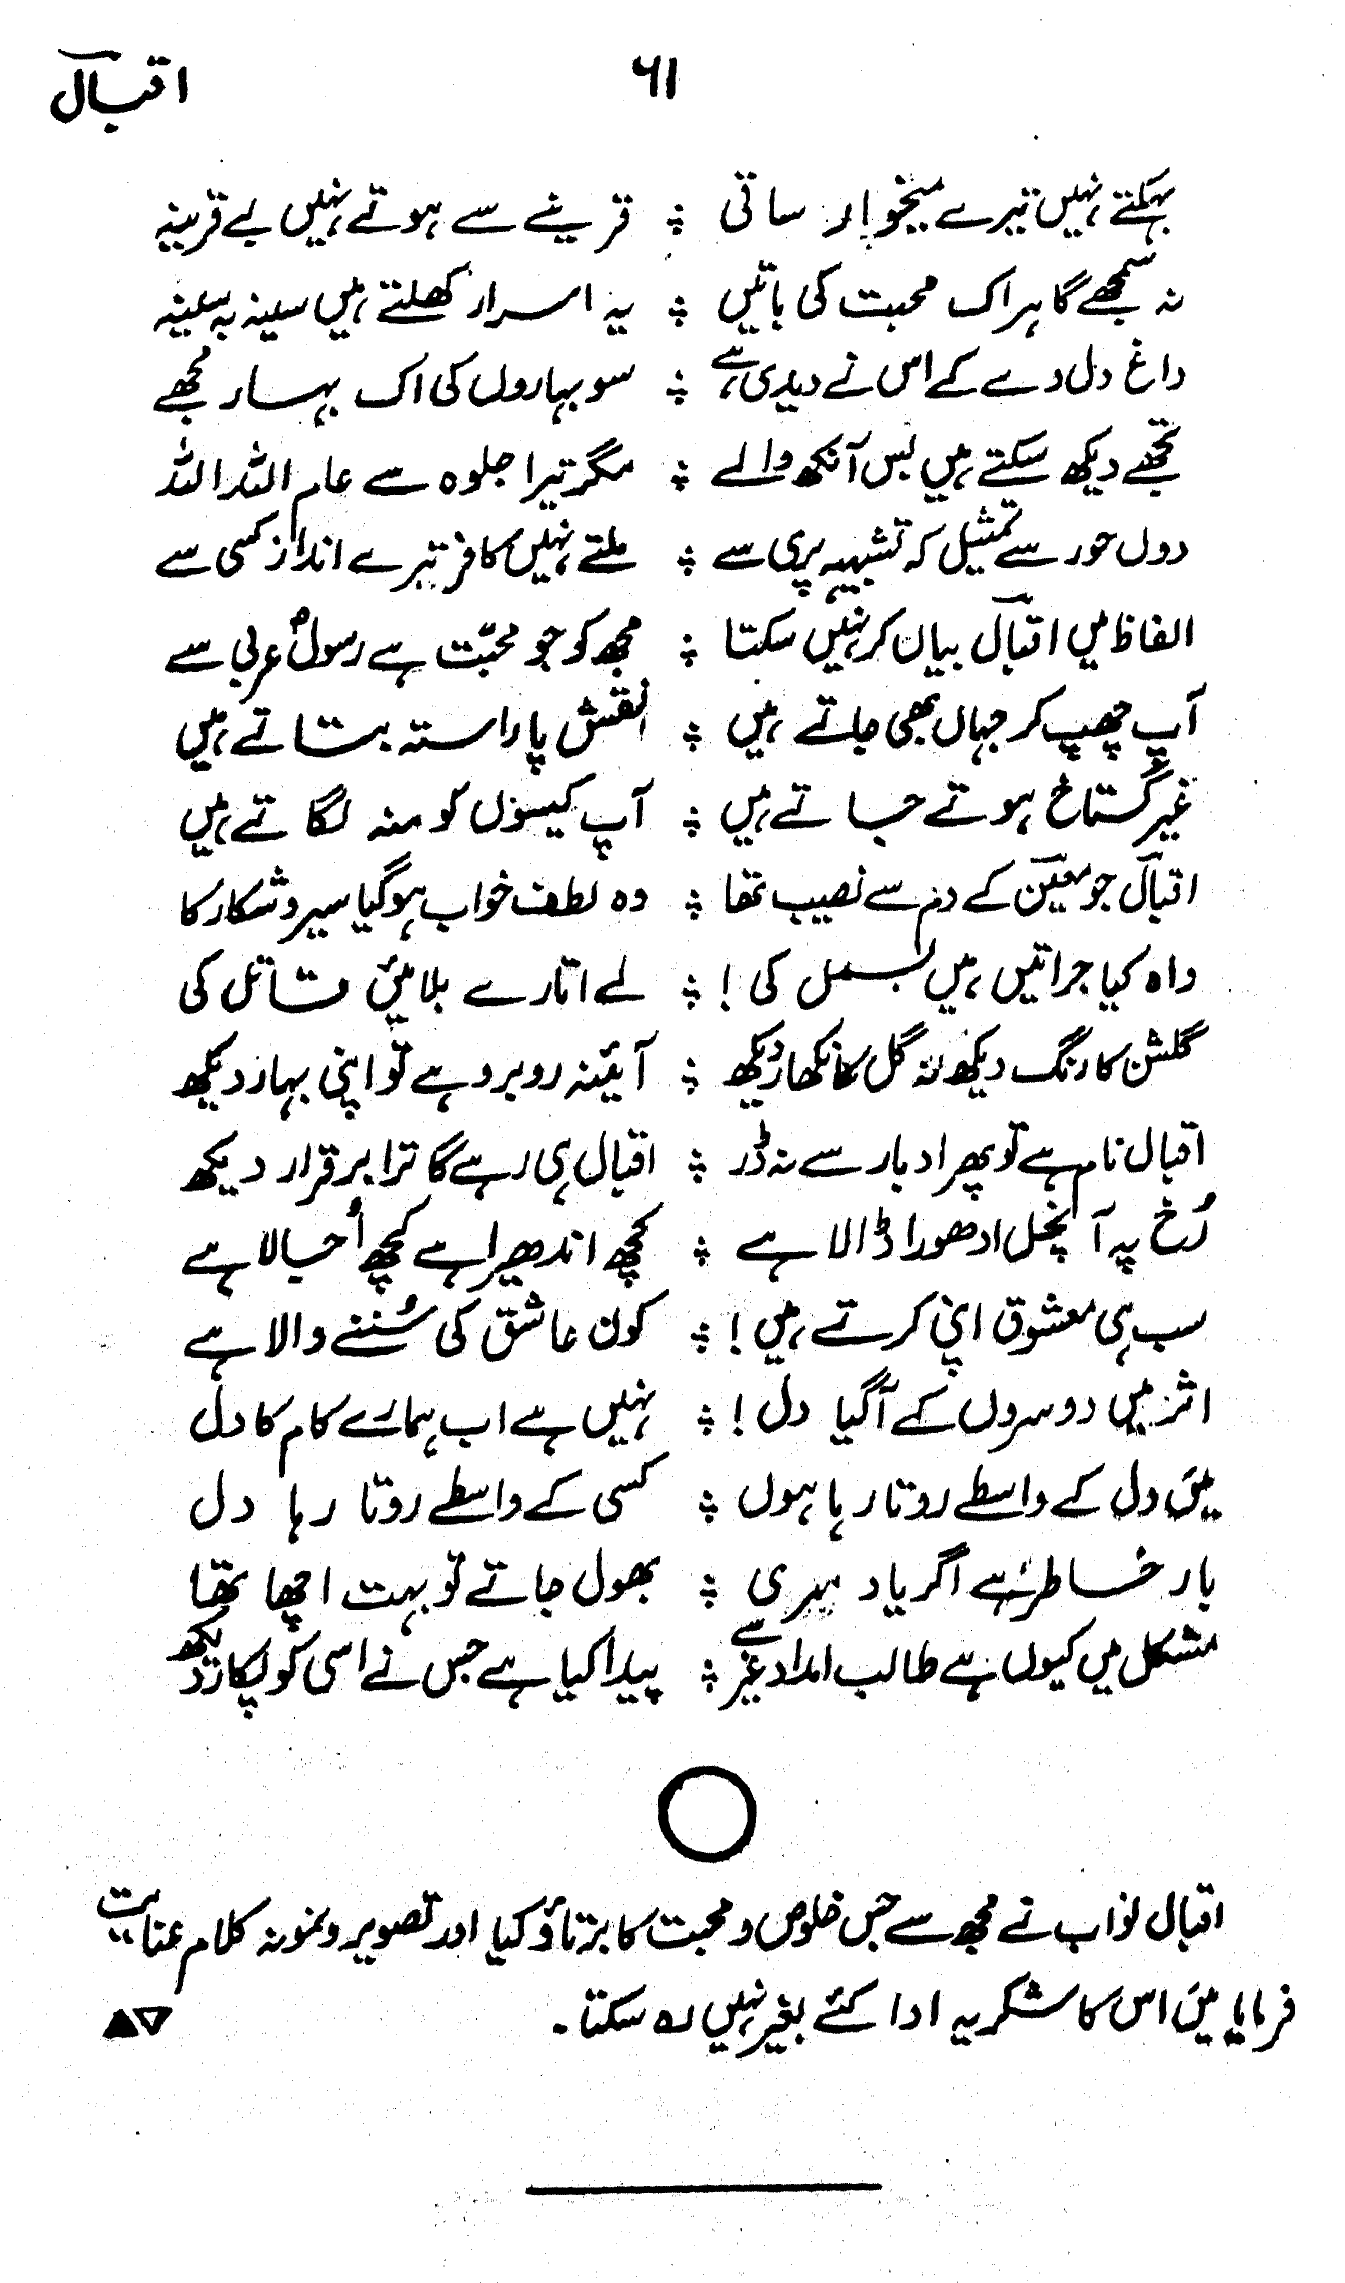 اقبالؔ ۶۱
بہکتے نہیں تیرے میخوار ساقی ؞ قرینے سے ہوتے نہیں بے قرینہ
نہ سمجھے گا ہر اک محبت کی باتیں ؞ یہ اسرار کھلتے ہیں سینہ بہ سینہ
داغ دل دے کے اس نے دیدی ہے ؞ سو بہاروں کی اک بہار مجھے
تجھے دیکھ سکتے ہیں بس آنکھ والے ؞ مگر تیرا جلوہ ہے عام اللہ اللہ
دوں حور سے تمثیل کہ تشبیہہ پری سے ؞ ملتے نہیں کافر تیرے انداز کسی سے
الفاظ میں اقبالؔ بیاں کر نہیں سکتا ؞ مجھ کو جو محبّت ہے رسولؐ عربی سے
آپ چھپ کر جہاں بھی جاتے ہیں ؞ نقش پا راستہ بتاتے ہیں
غیر گستاخ ہوتے جاتے ہیں ؞ آپ کیسوں کو منہ لگاتے ہیں
اقبالؔ جو معینؔ کے دم سے نصیب تھا ؞ وہ لطف خواب ہوگیا سیر و شکار کا
واہ کیا جراتیں ہیں بسمل کی ! ؞ لے اتارے بلائیں قاتل کی
گلشن کا رنگ دیکھ نہ گل کا نکھار دیکھ ؞ آئینہ روبرو ہے تو اپنی بہار دیکھ
اقبال نام ہے تو پھر ادبار سے نہ ڈر ؞ اقبال ہی رہے گا ترا برقرار دیکھ
رُخ پہ آنچل ادھورا ڈالا ہے ؞ کچھ اندھیرا ہے کچھ اُجالا ہے
سب ہی معشوق اپنی کرتے ہیں ! ؞ کون عاشق کی سُننے والا ہے
اثر میں دوسروں کے آگیا دل ! ؞ نہیں ہے اب ہمارے کام کا دل
میں دل کے واسطے روتا رہا ہوں ؞ کسی کے واسطے روتا رہا دل
بار خاطر ہے اگر یاد میری ؞ بھول جاتے تو بہت اچھا تھا
مشکل میں کیوں ہے طالب امداد غیر سے ؞ پیدا کیا ہے جس نے اسی کو پکار دیکھ
اقبال نواب نے مجھ سے جس خلوص و محبت کا برتاؤ کیا اور تصویر و نمونہ کلام عنایت
فرمایا میں اس کا شکریہ ادا کئے بغیر نہیں رہ سکتا۔